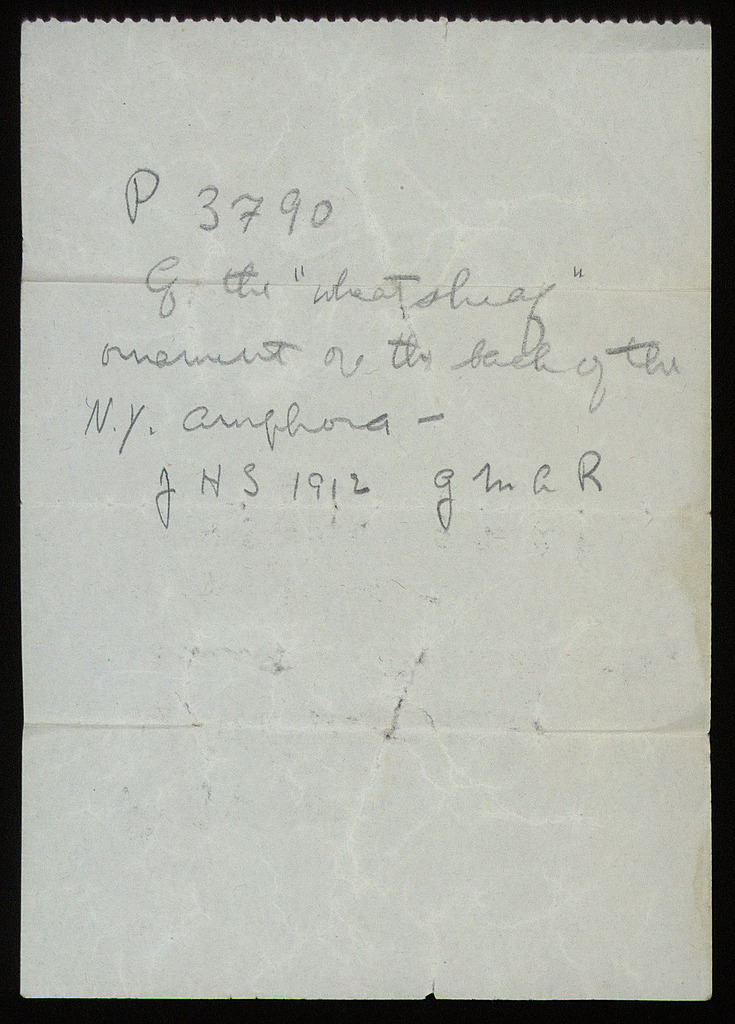 P 3790
Cf. the "wheatsheaf"
ornament on the back of the
N.Y. amphora –
J H S 1912 G M A R